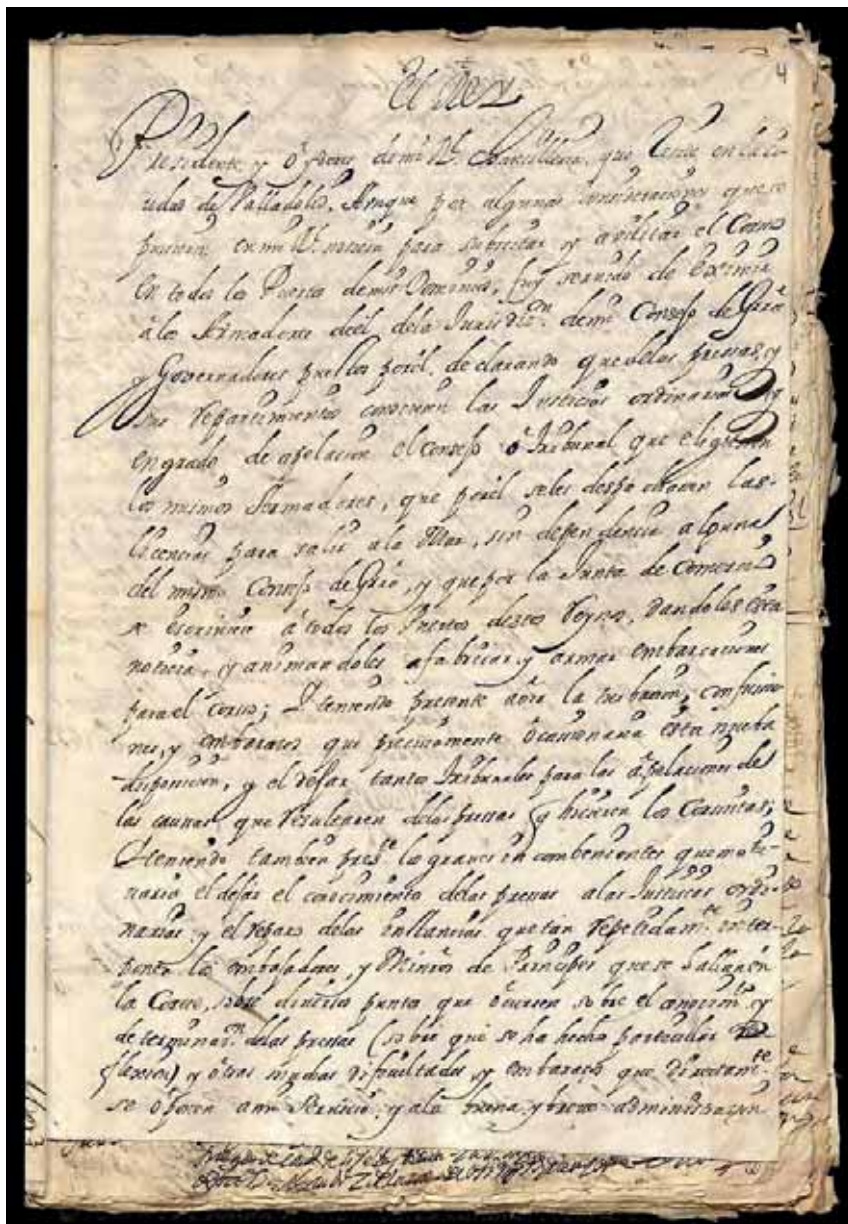 4
El Rey
Presidente, y oydores de mi Rl. Chancilleria, que reside en la Ciu
udad de Valladolid. Aunque por algunas consideraciones que se
pusieron en mi Rl. noticia para suscitar y avilitar el Corso
en todos los Puertos de mis Dominios, fuy servido de eximir
a los Armadores deel, dela Jurisdicn. demi Consejo de Grra
y Governadores puestos porel, declarando que delas pressas, y
sus repartimientos conociesen las Justicias ordinarias, y
en grado de apelacion el Consejo o Tribunal que eligiesen
los mismos Armadores, que porel seles despachasen las
licencias para salir ala Mar, sin dependencia alguna
del mismo Consejo de Grra, y que por la Junta de Comercio
se escriviese a todos los Puertos destos Reynos, dandoles esta
noticia, y animandoles a fabricar, y armar embarcaciones
para el Corso; Y teniendo presente aora la turbacion, confusio
nes, y embarazos que precisamente ocasionaria esta nueba
disposicion, y el dejar tantos Tribunales para las apelaciones de
las causas que resultaren delas pressas q hicieren los Corsistas;
Y teniendo tambien preste. los graves incombenientes que mote-
naria el dejar el conocimiento delas pressas alas Justicias ordi-
narias; y el reparo delas instancias que tan repetidamte. inter-
ponen los embajadores, y Ministros de Principes que se hallan en
la Corte, sobre diversos puntos que ocurren sobre el conocimto. y
determinacn. delas pressas (sobre que se ha hecho particular re
flexion) y otras muchas dificultades, y embarazos que directamte.
se oponen ami Servicio, y ala buena, y breve administracion